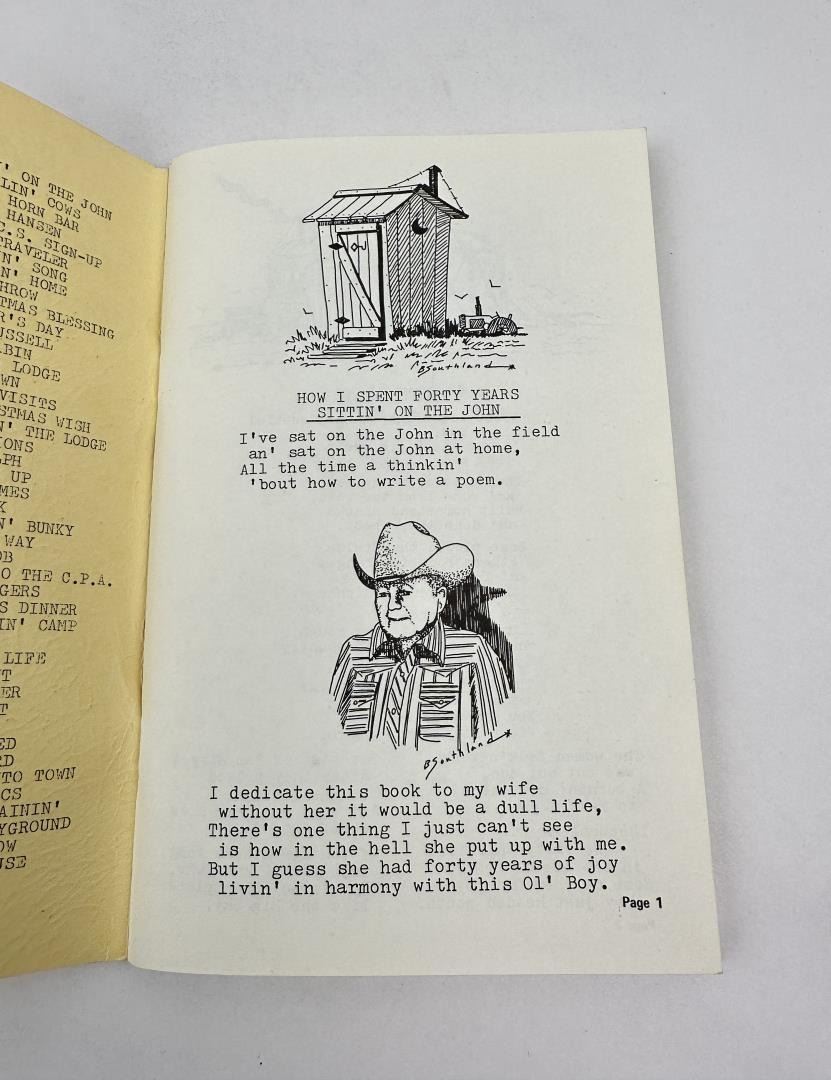 ON THE JOHN
COWS
HORN BAR
HANSEN
SIGN-UP
TRAVELER
SONG
HOME
THROW
BLESSING
DAY
RUSSELL
CABIN
LODGE
VISITS
WISH
THE LODGE
UP
BUNKY
WAY
TO THE C.P.A.
DINNER
CAMP
LIFE
TOWN
HOW I SPENT FORTY YEARS
SITTIN' ON THE JOHN
I've sat on the John in the field
an' sat on the John at home,
All the time a thinkin'
'bout how to write a poem.
BSouthland
BSouthland
I dedicate this book to my wife
without her it would be a dull life,
There's one thing I just can't see
is how in the hell she put up with me.
But I guess she had forty years of joy
livin' in harmony with this Ol' Boy.
Page 1